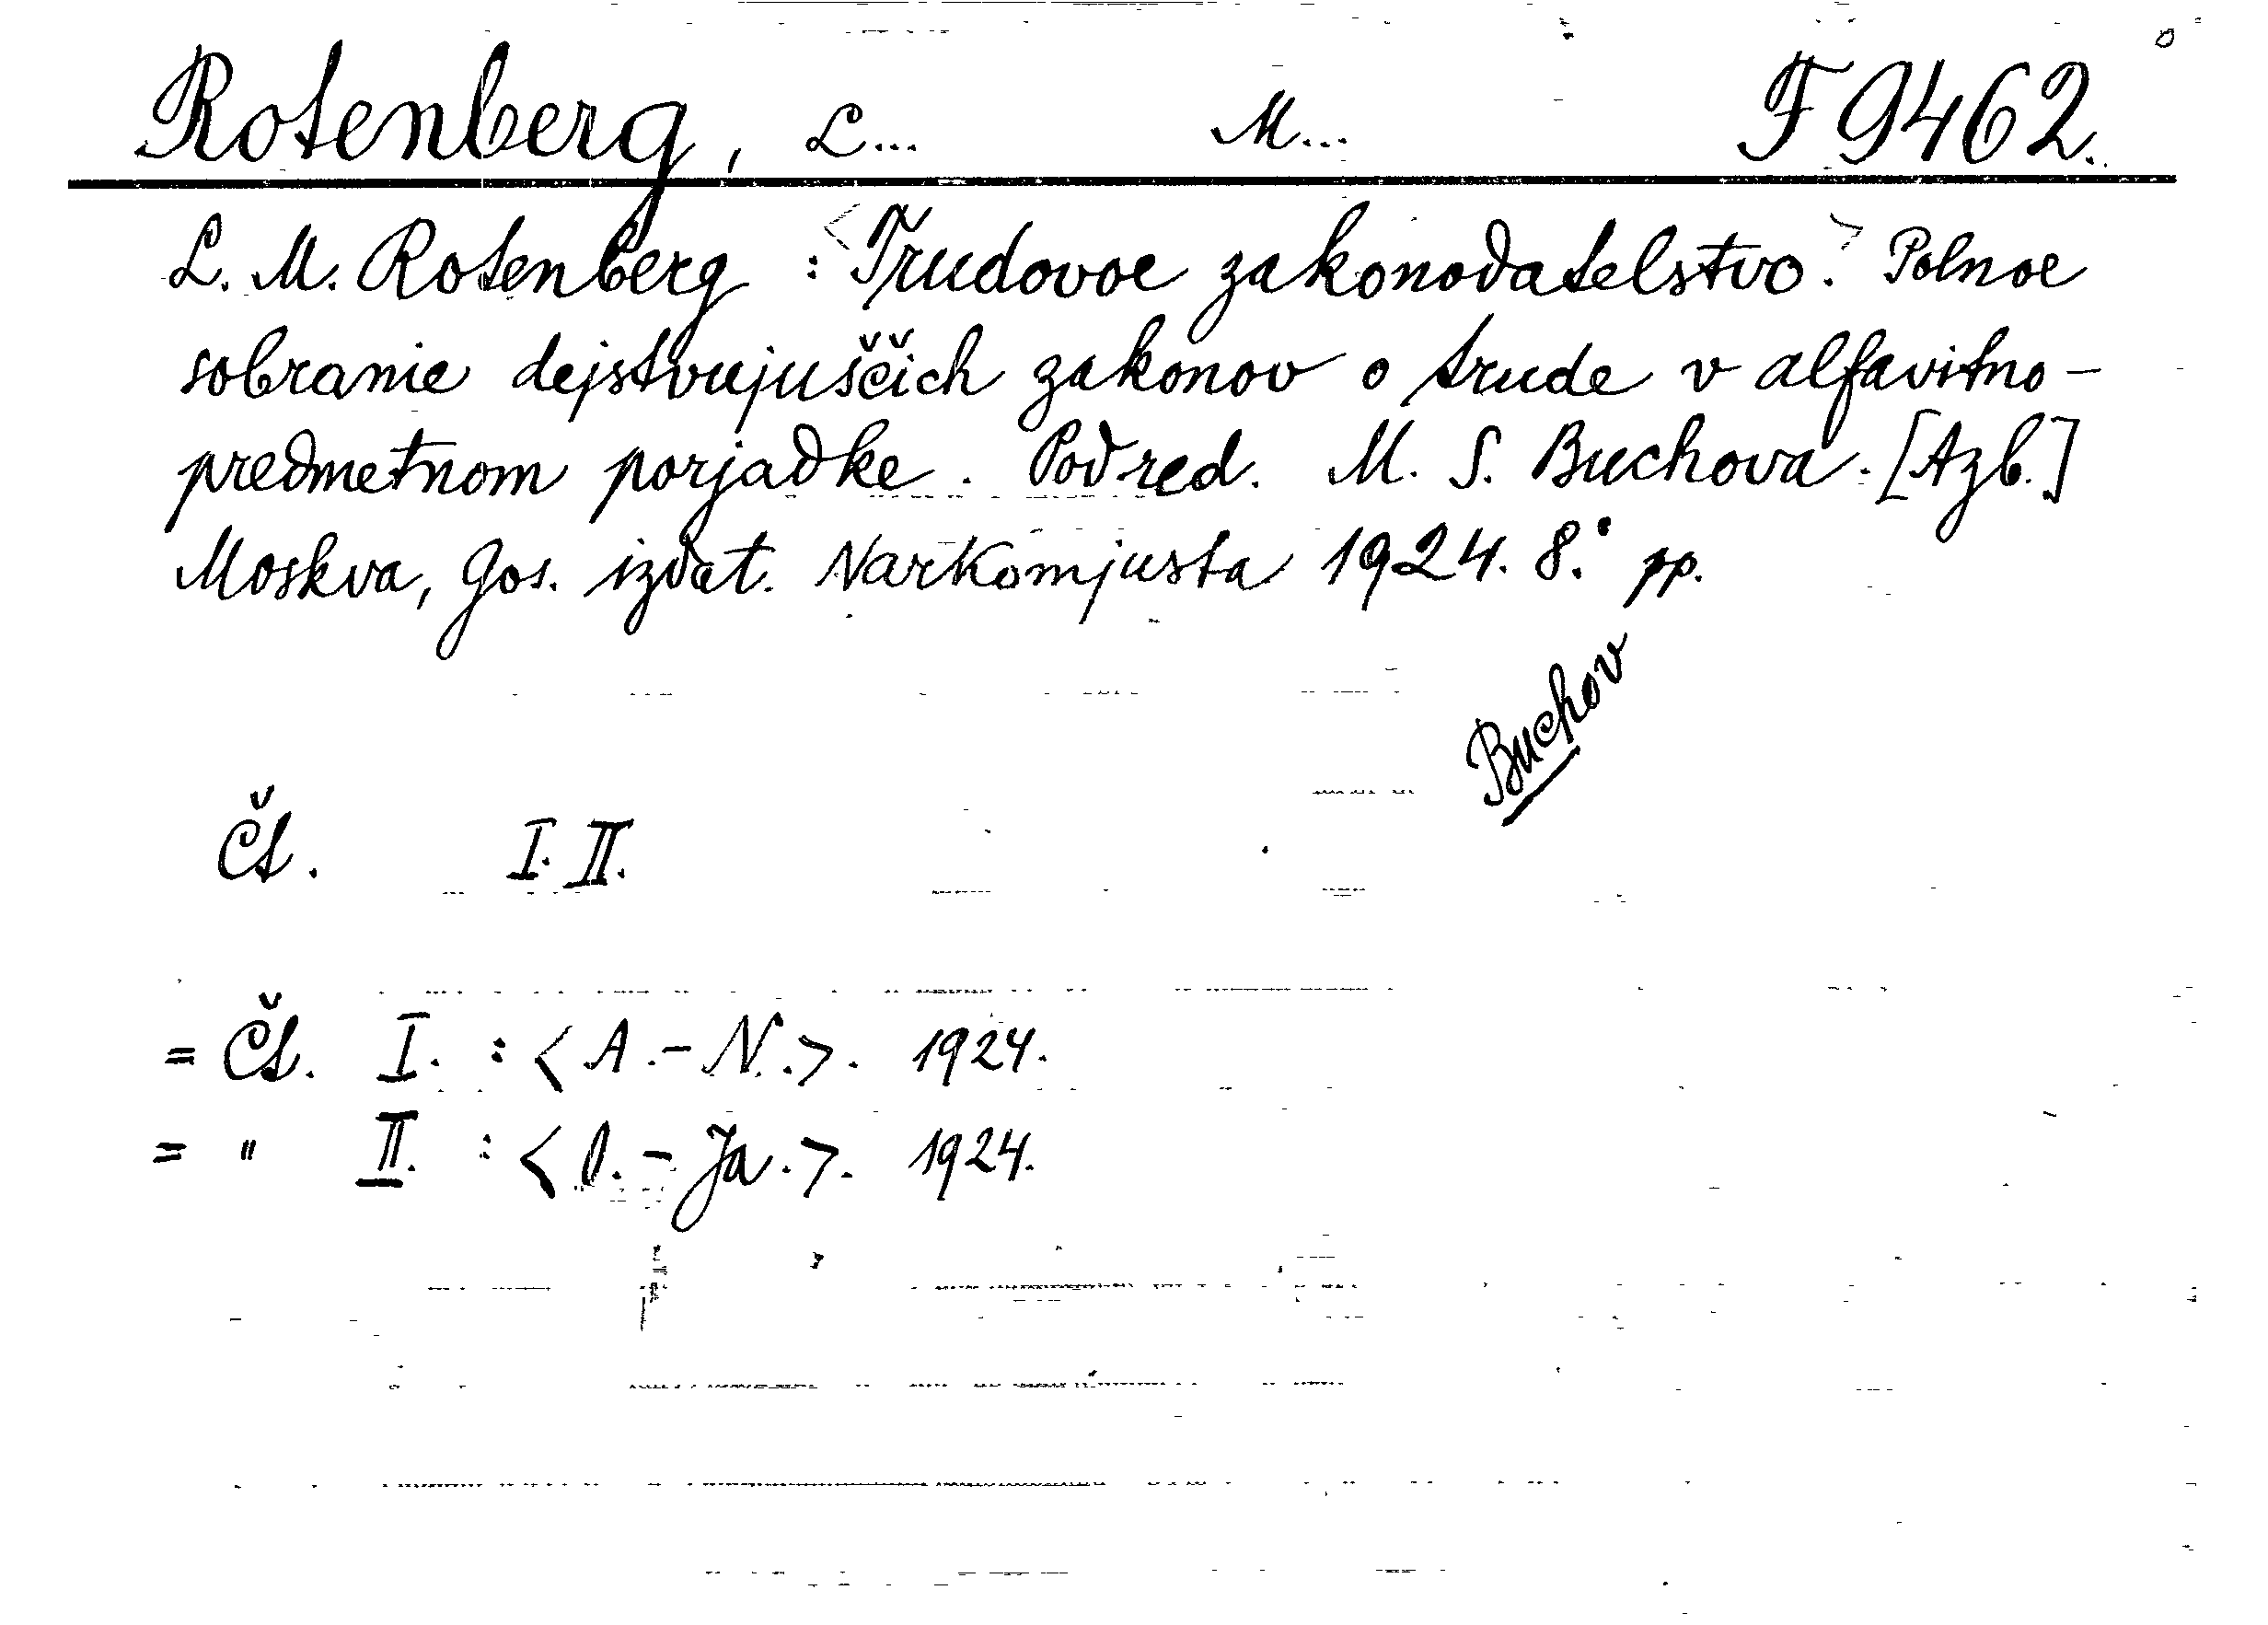 Rotenberg, L... M... F 9462.
L. M. Rotenberg : <Trudovoe zakonodatelstvo.> Polnoe
sobranie dejstvujuščich zakonov o trude v alfavitno-
predmetnom porjadke. Pod red. M. S. Buchova. [Azb.]
Moskva, Gos. izdat. Narkomjusta 1924. 8.° pp.
Buchov
Čt. I. II.
= Čt. I. : < A. - N. >. 1924.
= " II. : < O. - Ja. >. 1924.